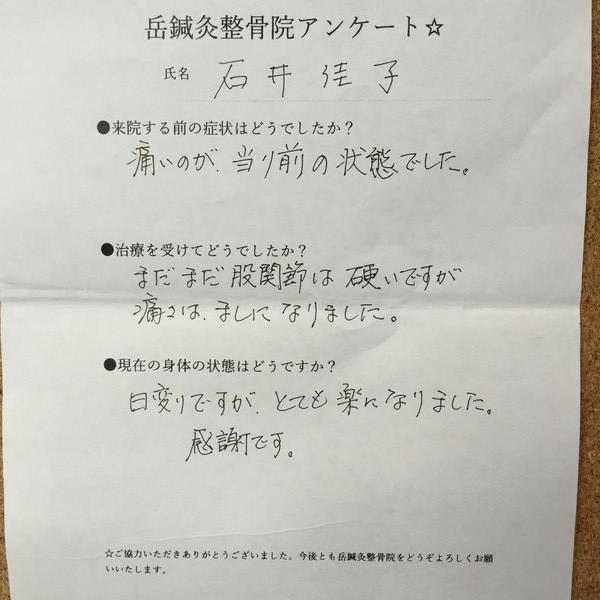 岳鍼灸整骨院アンケート☆
氏名 石井佳子
●来院する前の症状はどうでしたか？
痛いのが、当り前の状態でした。
●治療を受けてどうでしたか？
まだまだ股関節は硬いですが
痛さは、ましになりました。
●現在の身体の状態はどうですか？
日変りですが、とても楽になりました。
感謝です。
☆ご協力いただきありがとうございました。今後とも岳鍼灸整骨院をどうぞよろしくお願
いいたします。